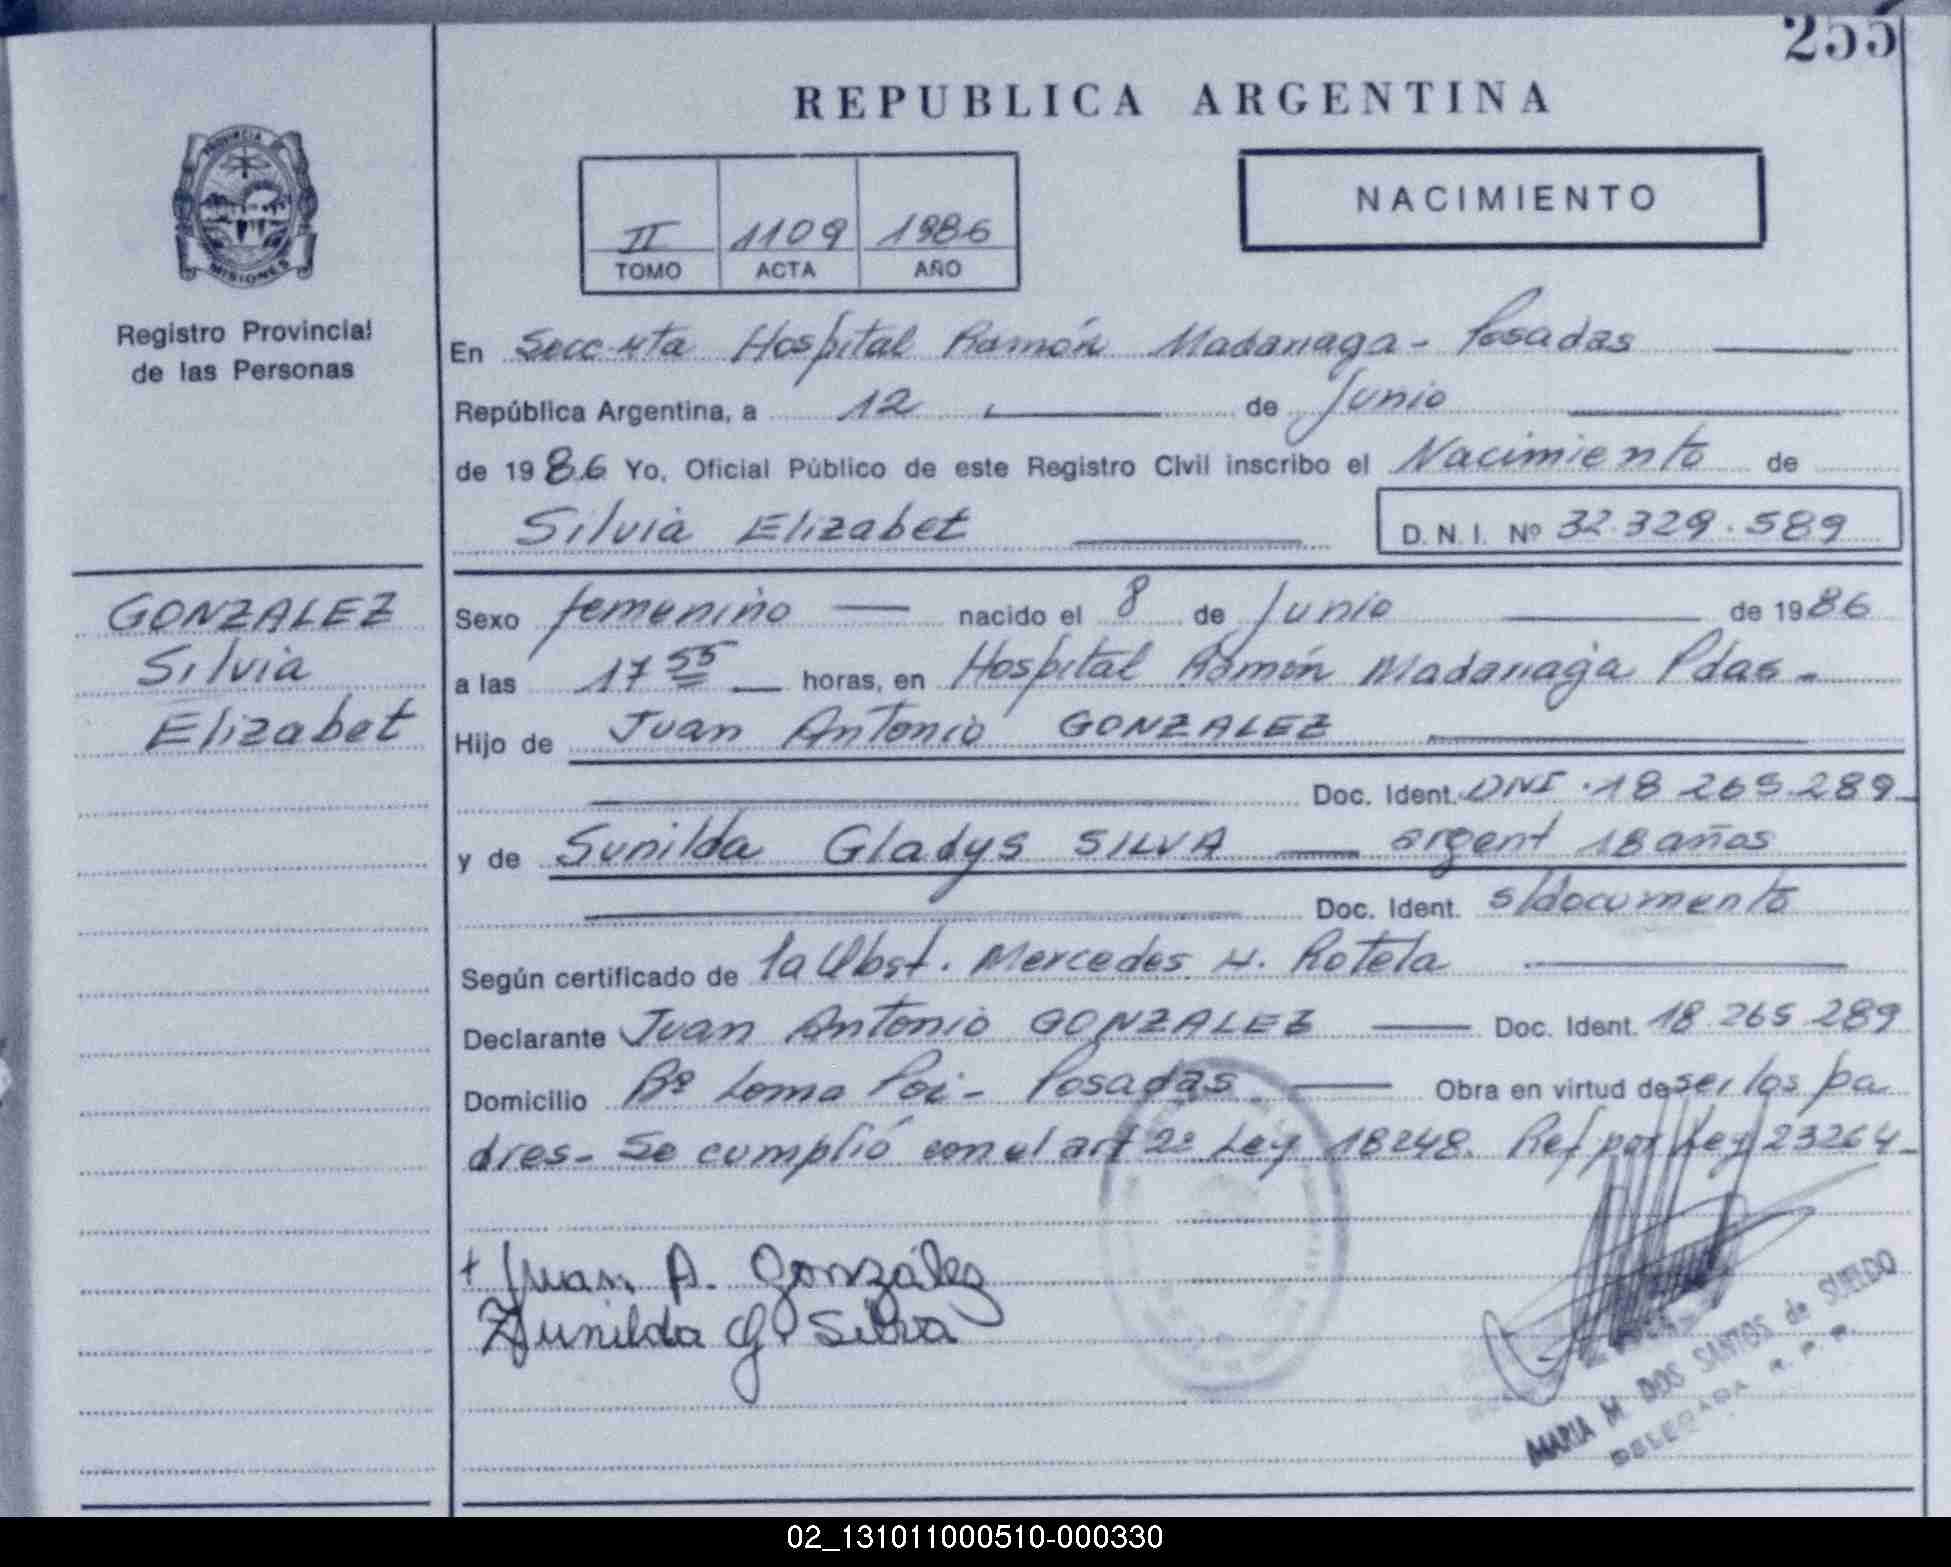 255
REPUBLICA ARGENTINA
NACIMIENTO
PROVINCIA
MISIONES
II 1109 1986
TOMO ACTA AÑO
Registro Provincial
de las Personas
En Secc 4ta Hospital Ramón Madariaga - Posadas
República Argentina, a 12 de Junio
de 1986 Yo, Oficial Público de este Registro Civil inscribo el Nacimiento de
Silvia Elizabet D.N.I. Nº 32.329.589
GONZALEZ
Silvia
Elizabet
Sexo femenino nacido el 8 de Junio de 1986
a las 17 55 horas, en Hospital Ramón Madariaga Pdas -
Hijo de Juan Antonio GONZALEZ
Doc. Ident. DNI 18 265 289
y de Sunilda Gladys SILVA argent 18 años
Doc. Ident. s/documento
Según certificado de la Obst. Mercedes H. Rotela
Declarante Juan Antonio GONZALEZ Doc. Ident. 18 265 289
Domicilio Bº Loma Poi - Posadas Obra en virtud de ser los pa
dres - Se cumplió con el art 2º Ley 18248. Ref por Ley 23264 -
+ Juan A. González
Zunilda G. Silva
MARIA M. DOS SANTOS de SUELDO
DELEGADA R. P. P.
02_131011000510-000330